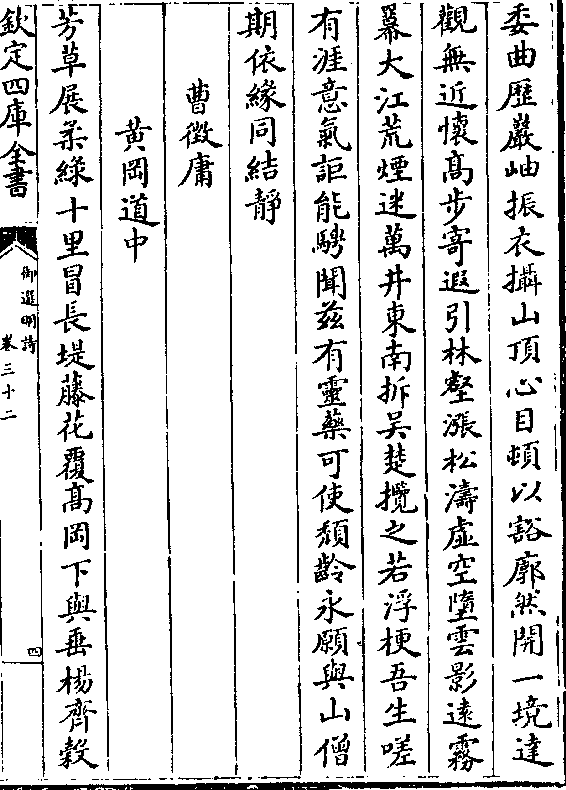 委曲歴巖岫振衣攝山頂心目頓以豁廓然開一境達
觀無近懷髙步寄遐引林壑漲松濤虚空墮雲影逺霧
羃大江荒煙迷萬井東南拆吴楚攬之若浮梗吾生嗟
有涯意氣詎能騁聞兹有靈藥可使頽齡永願與山僧
期依緣同結靜
曹徵庸
黄岡道中
芳草展柔緑十里冒長堤藤花覆髙岡下與垂楊齊穀
欽定四庫全書
御選明詩
卷三十二
四